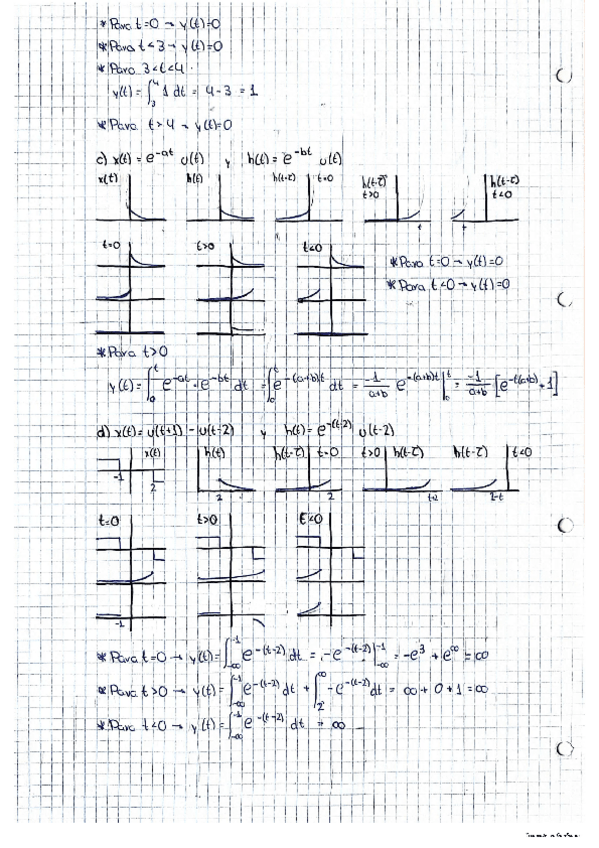 * Para t=0 → y(t)=0
* Para t<3 → y(t)=0
* Para 3<t<4
y(t) = ∫₃⁴ 1 dt = 4-3 = 1
* Para t>4 → y(t)=0
c) x(t) = e^-at u(t) y h(t) = e^-bt u(t)
x(t) h(t) h(t-τ) t=0 h(t-τ) t>0 h(t-τ) t<0
t t
t=0 t>0 t<0
* Para t=0 → y(t)=0
* Para t<0 → y(t)=0
* Para t>0
y(t) = ∫₀^t e^-at · e^-bt dt = ∫₀^t e^-(a+b)t dt = -1/(a+b) e^-(a+b)t |₀^t = -1/(a+b) [e^-t(a+b) + 1]
d) x(t) = u(t+1) - u(t-2) y h(t) = e^-(t-2) u(t-2)
x(t) h(t) h(t-τ) t=0 t>0 h(t-τ) h(t-τ) t<0
-1 2 2 2 t+2 2-t
t=0 t>0 t<0
-1
* Para t=0 → y(t) = ∫_-∞^-1 e^-(t-2) dt = -e^-(t-2) |_-∞^-1 = -e^3 + e^∞ = ∞
* Para t>0 → y(t) = ∫_-∞^-1 e^-(t-2) dt + ∫₂^∞ -e^-(t-2) dt = ∞ + 0 + 1 = ∞
* Para t<0 → y(t) = ∫_-∞^-1 e^-(t-2) dt = ∞